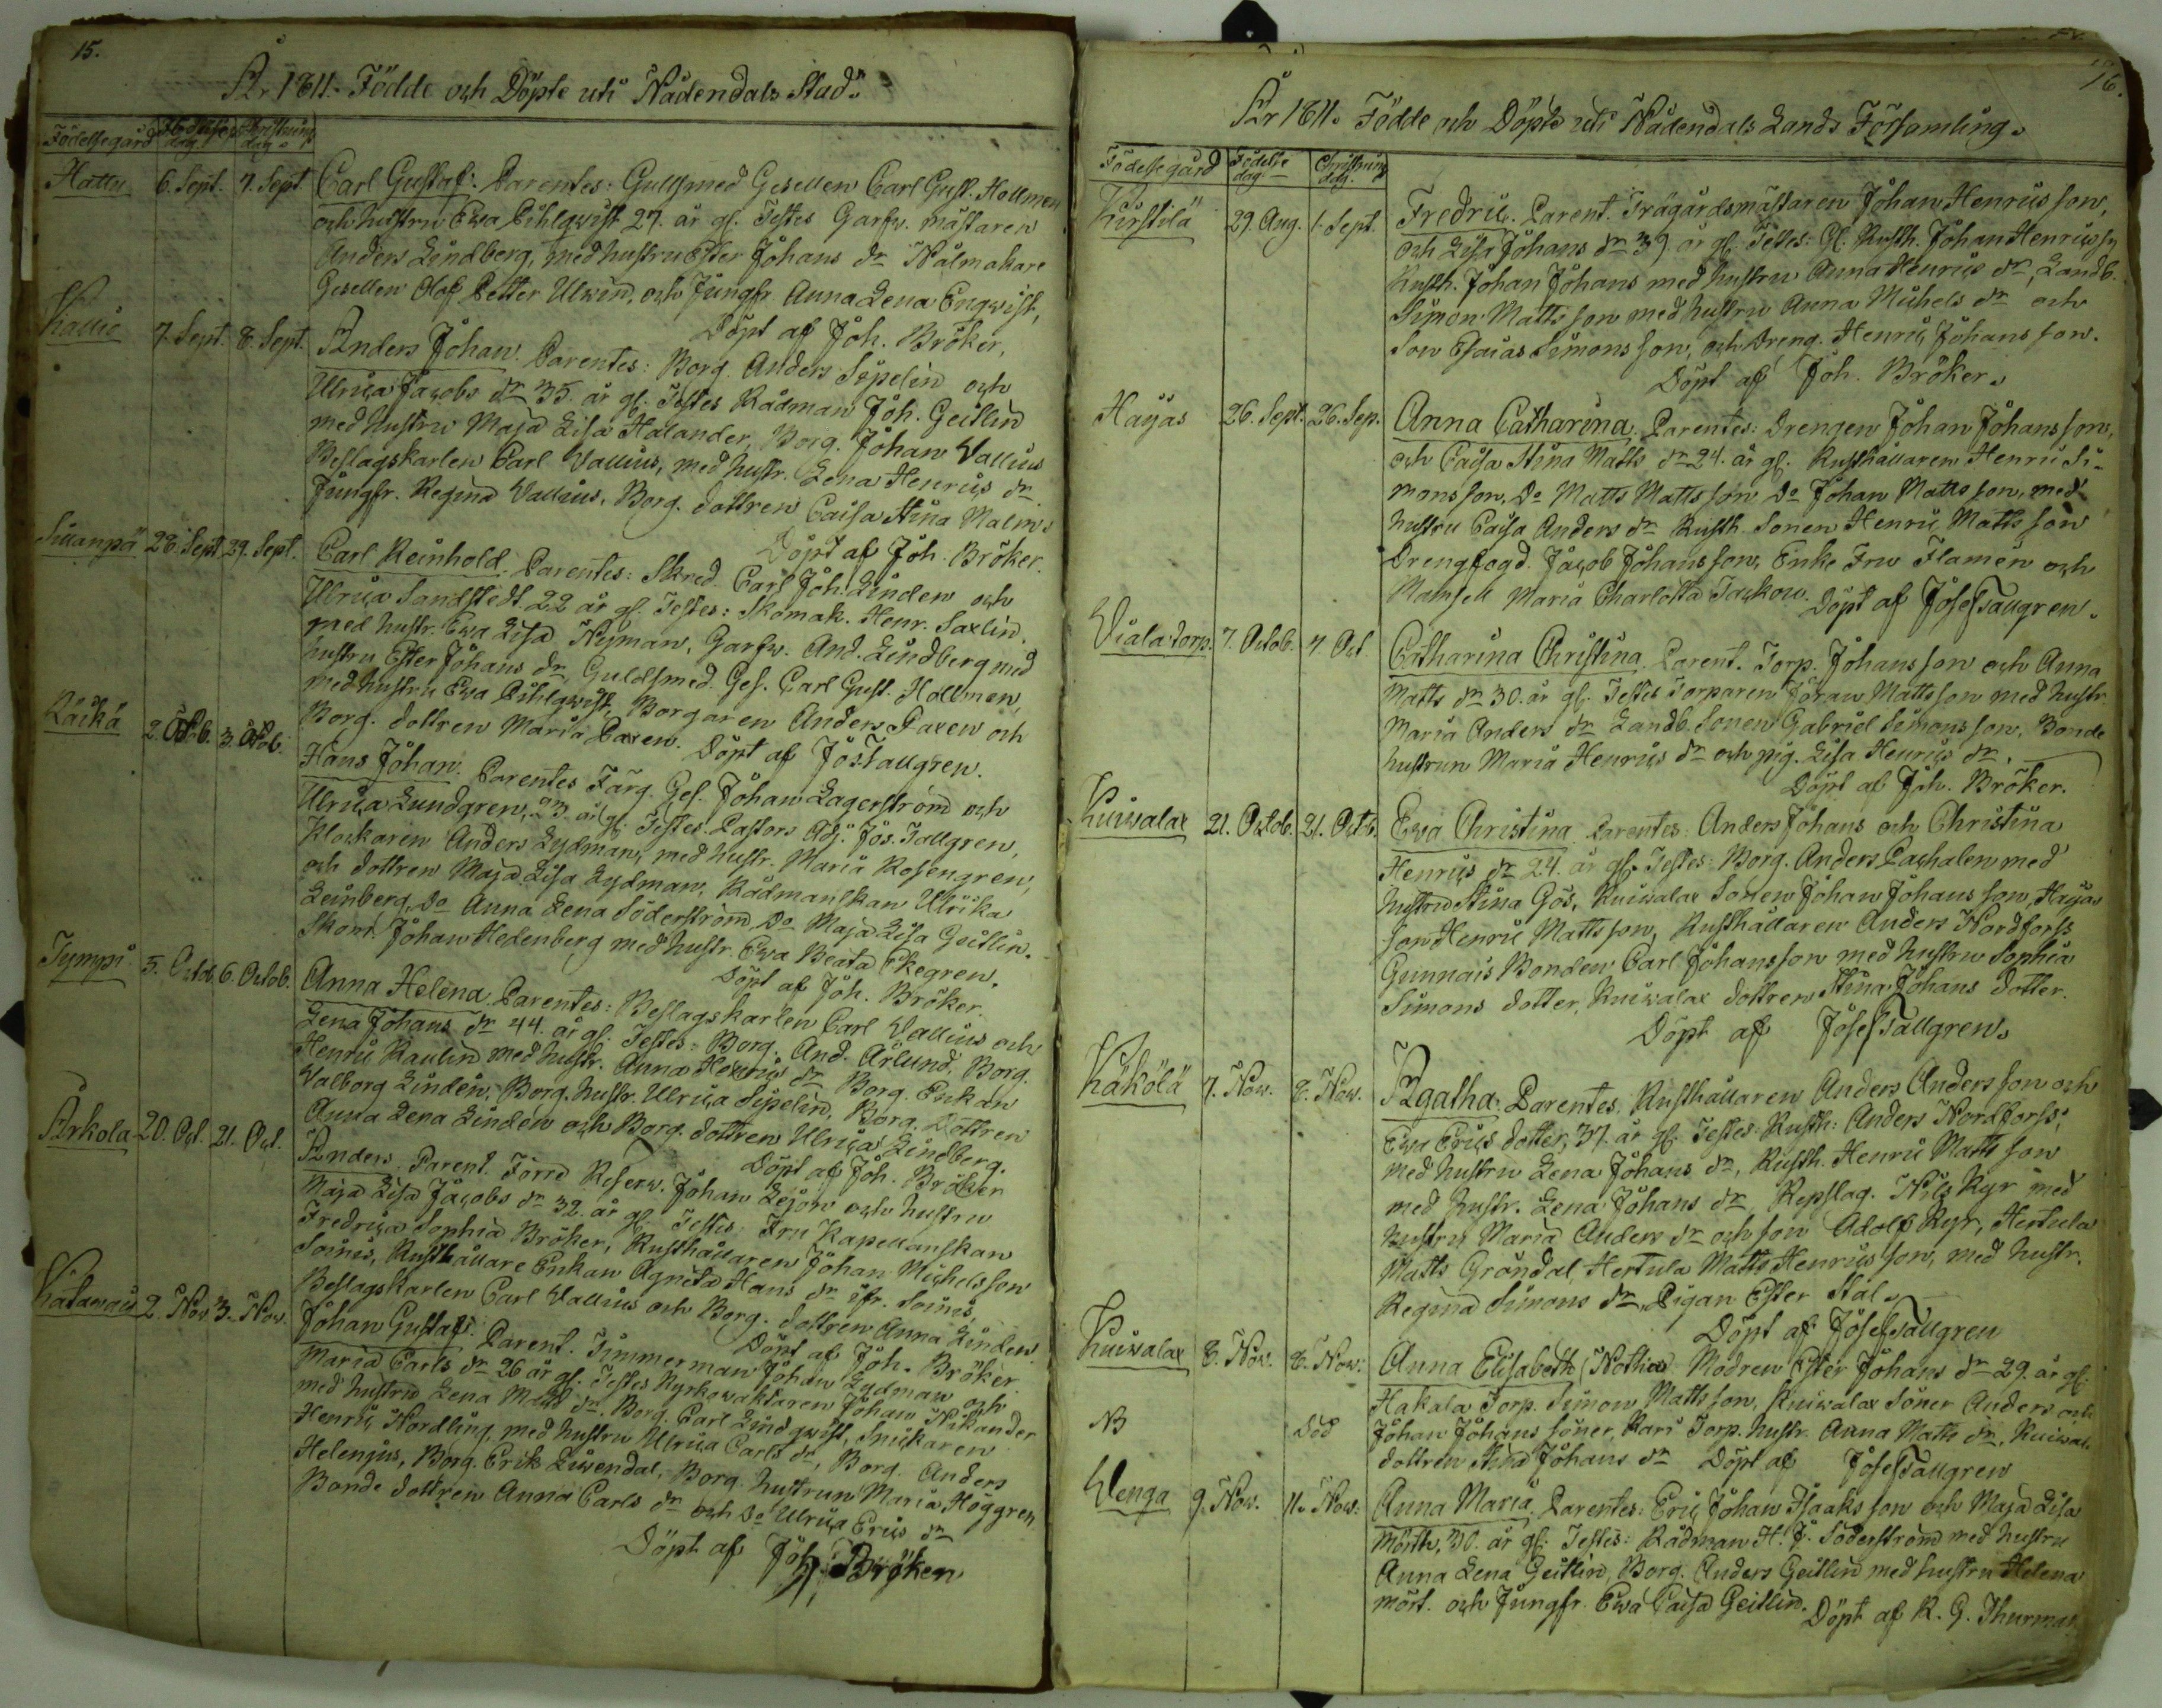 15.
År 1811. Födde och Döpte uti Nådendals Stad.
Födelsegård Födelse dag Christning dag.
Hattu 6. Sept. 7. Sept. Carl Gustaf. Parentes: Gullsmed Gesellen Carl Gust. Hollmen
och hustru Ewa Pihlqwist 27. år gl. Testes Garfw. mästaren
Anders Lindberg, med hustru Ester Johans dr Nålmakare
Gesellen Olof Petter Ulwin, och Jungfr Anna Lena Engwist,
Döpt af Joh. Bröker.
Kallio 7. Sept. 8. Sept. Anders Johan. Parentes: Borg. Anders Sipelin och
Ulrica Jacobs dr 35. år gl. Testes Rådman Joh. Geitlin
med hustru Maja Lisa Hålander, Borg. Johan Vallius
Beslagskarlen Carl Vallius, med hustr. Lena Henrics dr
Jungfr. Regina Vallius, Borg. dottren Caisa Stina Malin.
Döpt af Joh. Bröker.
Sillanpä 28. Sept 29. Sept. Carl Reinhold. Parentes: Skred. Carl Joh. Linden och
Ulrica Sandstedt 22 år gl. Testes: Skomak. Henr. Saxlin.
med hustr. Ewa Lisa Nyman, Garfw. And. Lindberg med
hustru Ester Johans dr, Guldsmed. Ges. Carl Gust. Hollmen,
med hustru Ewa Pihlqwist, Borgaren Anders Paxen och
Borg. dottren Maria Paxen. Döpt af Jos Tallgren.
Räikä 2. Octob. 3. Octob. Hans Johan. Parentes Färg. Ges. Johan Lagerström och
Ulrica Lundgren, år gl. Testes Pastors Adj. Jos. Tallgren,
Klockaren Anders Lydman, med hustr. Maria Rosengren,
och dottren Maja Lisa Lydman, Rådmanskan Ulrika
Leinberg, Do Anna Lena Söderström, Do Maja Lisa Geitlin.
Skom. Johan Hedenberg med hustr. Ewa Beata Ekegren.
Döpt af Joh. Bröker.
Tymppi 5. Octob 6. Octob. Anna Helena. Parentes: Beslagskarlen Carl Vallius och
Lena Johans dr 44. år gl. Testes: Borg. And. Ärlund, Borg.
Henric Raulin med hustr. Anna Henrics dr Borg. Enkan
Valborg Linden, Borg. hustr. Ulrica Sipelin, Borg. Dottren
Anna Lena Linden och Borg. dottren Ulrica Lindberg.
Döpt af Joh. Bröker
Arkola 20. Oct. 21. Oct. Anders. Parent. Förre Reserv. Johan Lejon och hustru
Maja Lisa Jacobs dr 32. år gl. Testes: Fru Kapellanskan
Fredrica Sophia Bröker, Rusthållaren Johan Michelsson
Soinis, Rusthållare Enkan Agneta Hans dr ifr. Soinis,
Beslagskarlen Carl Vallius och Borg. dottren Anna Linden.
Döpt af Joh. Bröker.
Katawais 2. Now 3. Now. Johan Gustaf. Parent. Timmerman Johan Lydman och
Maria Carls dr 26 år gl. Testes Kyrkowaktaren Johan Nikander
med hustru Lena Matts dr, Borg. Carl Lindqwist, Snickaren
Henric Nordling, med hustru Ulrica Carls dr, Borg. Anders
Helenius, Borg. Erik Liwendal, Borg. hustrun Maria Höggren
Bonde dottren Anna Carls dr och Do Ulrica Erics dr
Döpt af Joh: Bröker
16.
År 1811. Födde och Döpte uti Nådendals Lands Församling.
Födelsegård Födelse dag Christning dag.
Kirstilä 29. Aug. 1. Sept. Fredric. Parent. Trägårdsmästaren Johan Henricsson,
och Lisa Johans dr 39 år gl. Testes: Gl. Rusth. Johan Henricsson
Rusth. Johan Johans med hustru Anna Henrics dr, Landb.
Simon Mattsson med hustru Anna Michels dr och
Son Esaias Simonsson, och Dreng. Henric Johansson.
Döpt af Joh. Bröker.
Haijas 26. Sept. 26. Sep. Anna Catharina. Parentes: Drengen Johan Johansson,
och Caisa Stina Matts dr 24. år gl. Rusthållaren Henric Si-
monsson, Do Matts Mattsson Do Johan Mattsson, med
hustru Caisa Anders dr Rusth. Sonen Henric Mattsson
Drengfogd. Jacob Johansson, Enke Fru Flamen och
Mamsell Maria Charlotta Tackow. Döpt af Josef Tallgren.
Viala torp. 7. Octob. 7. Oct. Catharina Christina. Parent. Torp. Johansson och Anna
Matts dr 30. år gl. Testes Torparen Jöran Mattsson med hustr.
Maria Anders dr Landb. Sonen Gabriel Simonsson, Bonde
hustrun Maria Henrics dr och pig. Lisa Henrics dr.
Döpt af Joh. Bröker.
Kuiwalax 21. Octob. 21. Octb. Ewa Christina. Parentes: Anders Johans och Christina
Henrics dr 24. år gl. Testes: Borg. Anders Pachalen med
hustru Stina Gös, Kuiwalax Sonen Johan Johansson, Haijas
son Henric Mattsson, Rusthållaren Anders Nordforss
Gunnais Bonden Carl Johansson med hustru Sophia
Simons dotter, Kuiwalax dottren Stina Johans dotter.
Döpt af Josef Tallgren.
Käkölä 7. Now. 8. Now. Agatha. Parentes, Rusthållaren Anders Andersson och
Ewa Erics dotter, 37. år gl. Testes: Rusth: Anders Nordforss,
med hustru Lena Johans dr, Rusth. Henric Mattsson
med hustr. Lena Johans dr Repslag. Nils Kyr med
hustru Maria Anders dr och son Adolf Kyr, Hertula
Matts Gröndal, Hertula Matts Henricsson, med hustr.
Regina Simons dr, Pigan Ester Stal.
Döpt af Josef Tallgren
Kuiwalax 8. Now. 8. Now: Anna Elisabeth (Notha) Modren Ester Johans dr 29. år gl.
Hakala Torp. Simon Mattsson, Kuiwalax Söner Anders och
NB död Johan Johans söner, Kari Torp. hustr. Anna Matts dr, Kuiwal.
dottren Stina Johans dr Döpt af Josef Tallgren
Wenga 9. Now. 11. Now. Anna Maria. Parentes: Eric Johan Isaaksson och Maja Lisa
Mörth, 30. år gl: Testes: Rådman H. J. Söderström med hustru
Anna Lena Geitlin, Borg. Anders Geitlin med hustru Helena
Mört. och Jungfr. Ewa Caisa Geitlin. Döpt af K. G. Thurman